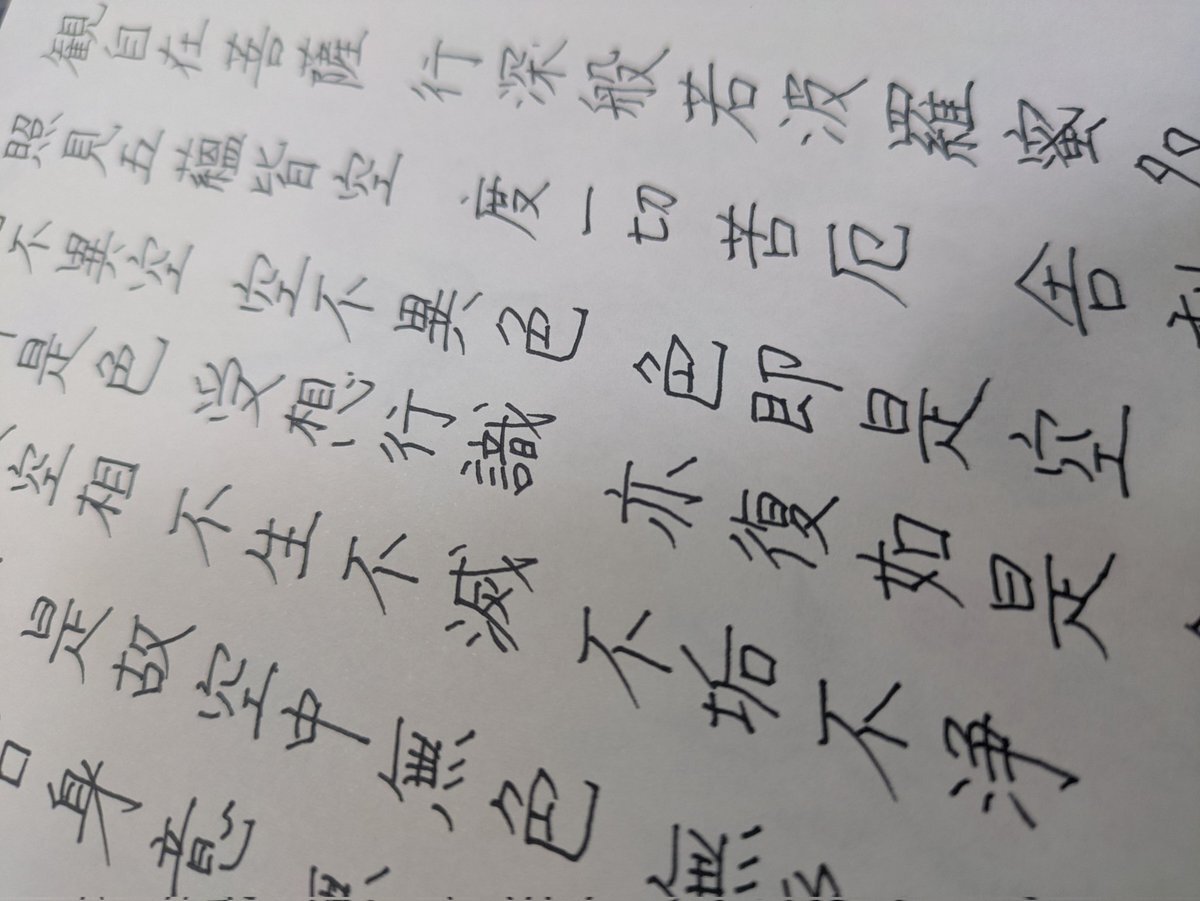 観自在菩薩 行深般若波羅蜜
照見五蘊皆空 度一切苦厄 舎
不異空 空不異色 色即是空
是色 受想行識 亦復如是
空相 不生不滅 不垢不浄
是故空中無色 無
身意